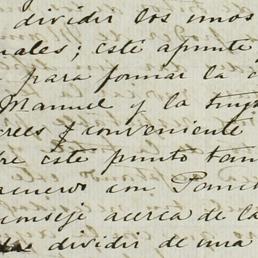 dividir los unos
uales; este apunte
para formar la c
Manuel y la
crees conveniente
re este punto tam
acuerdo con Panch
conseje acerca de la
dividir de una